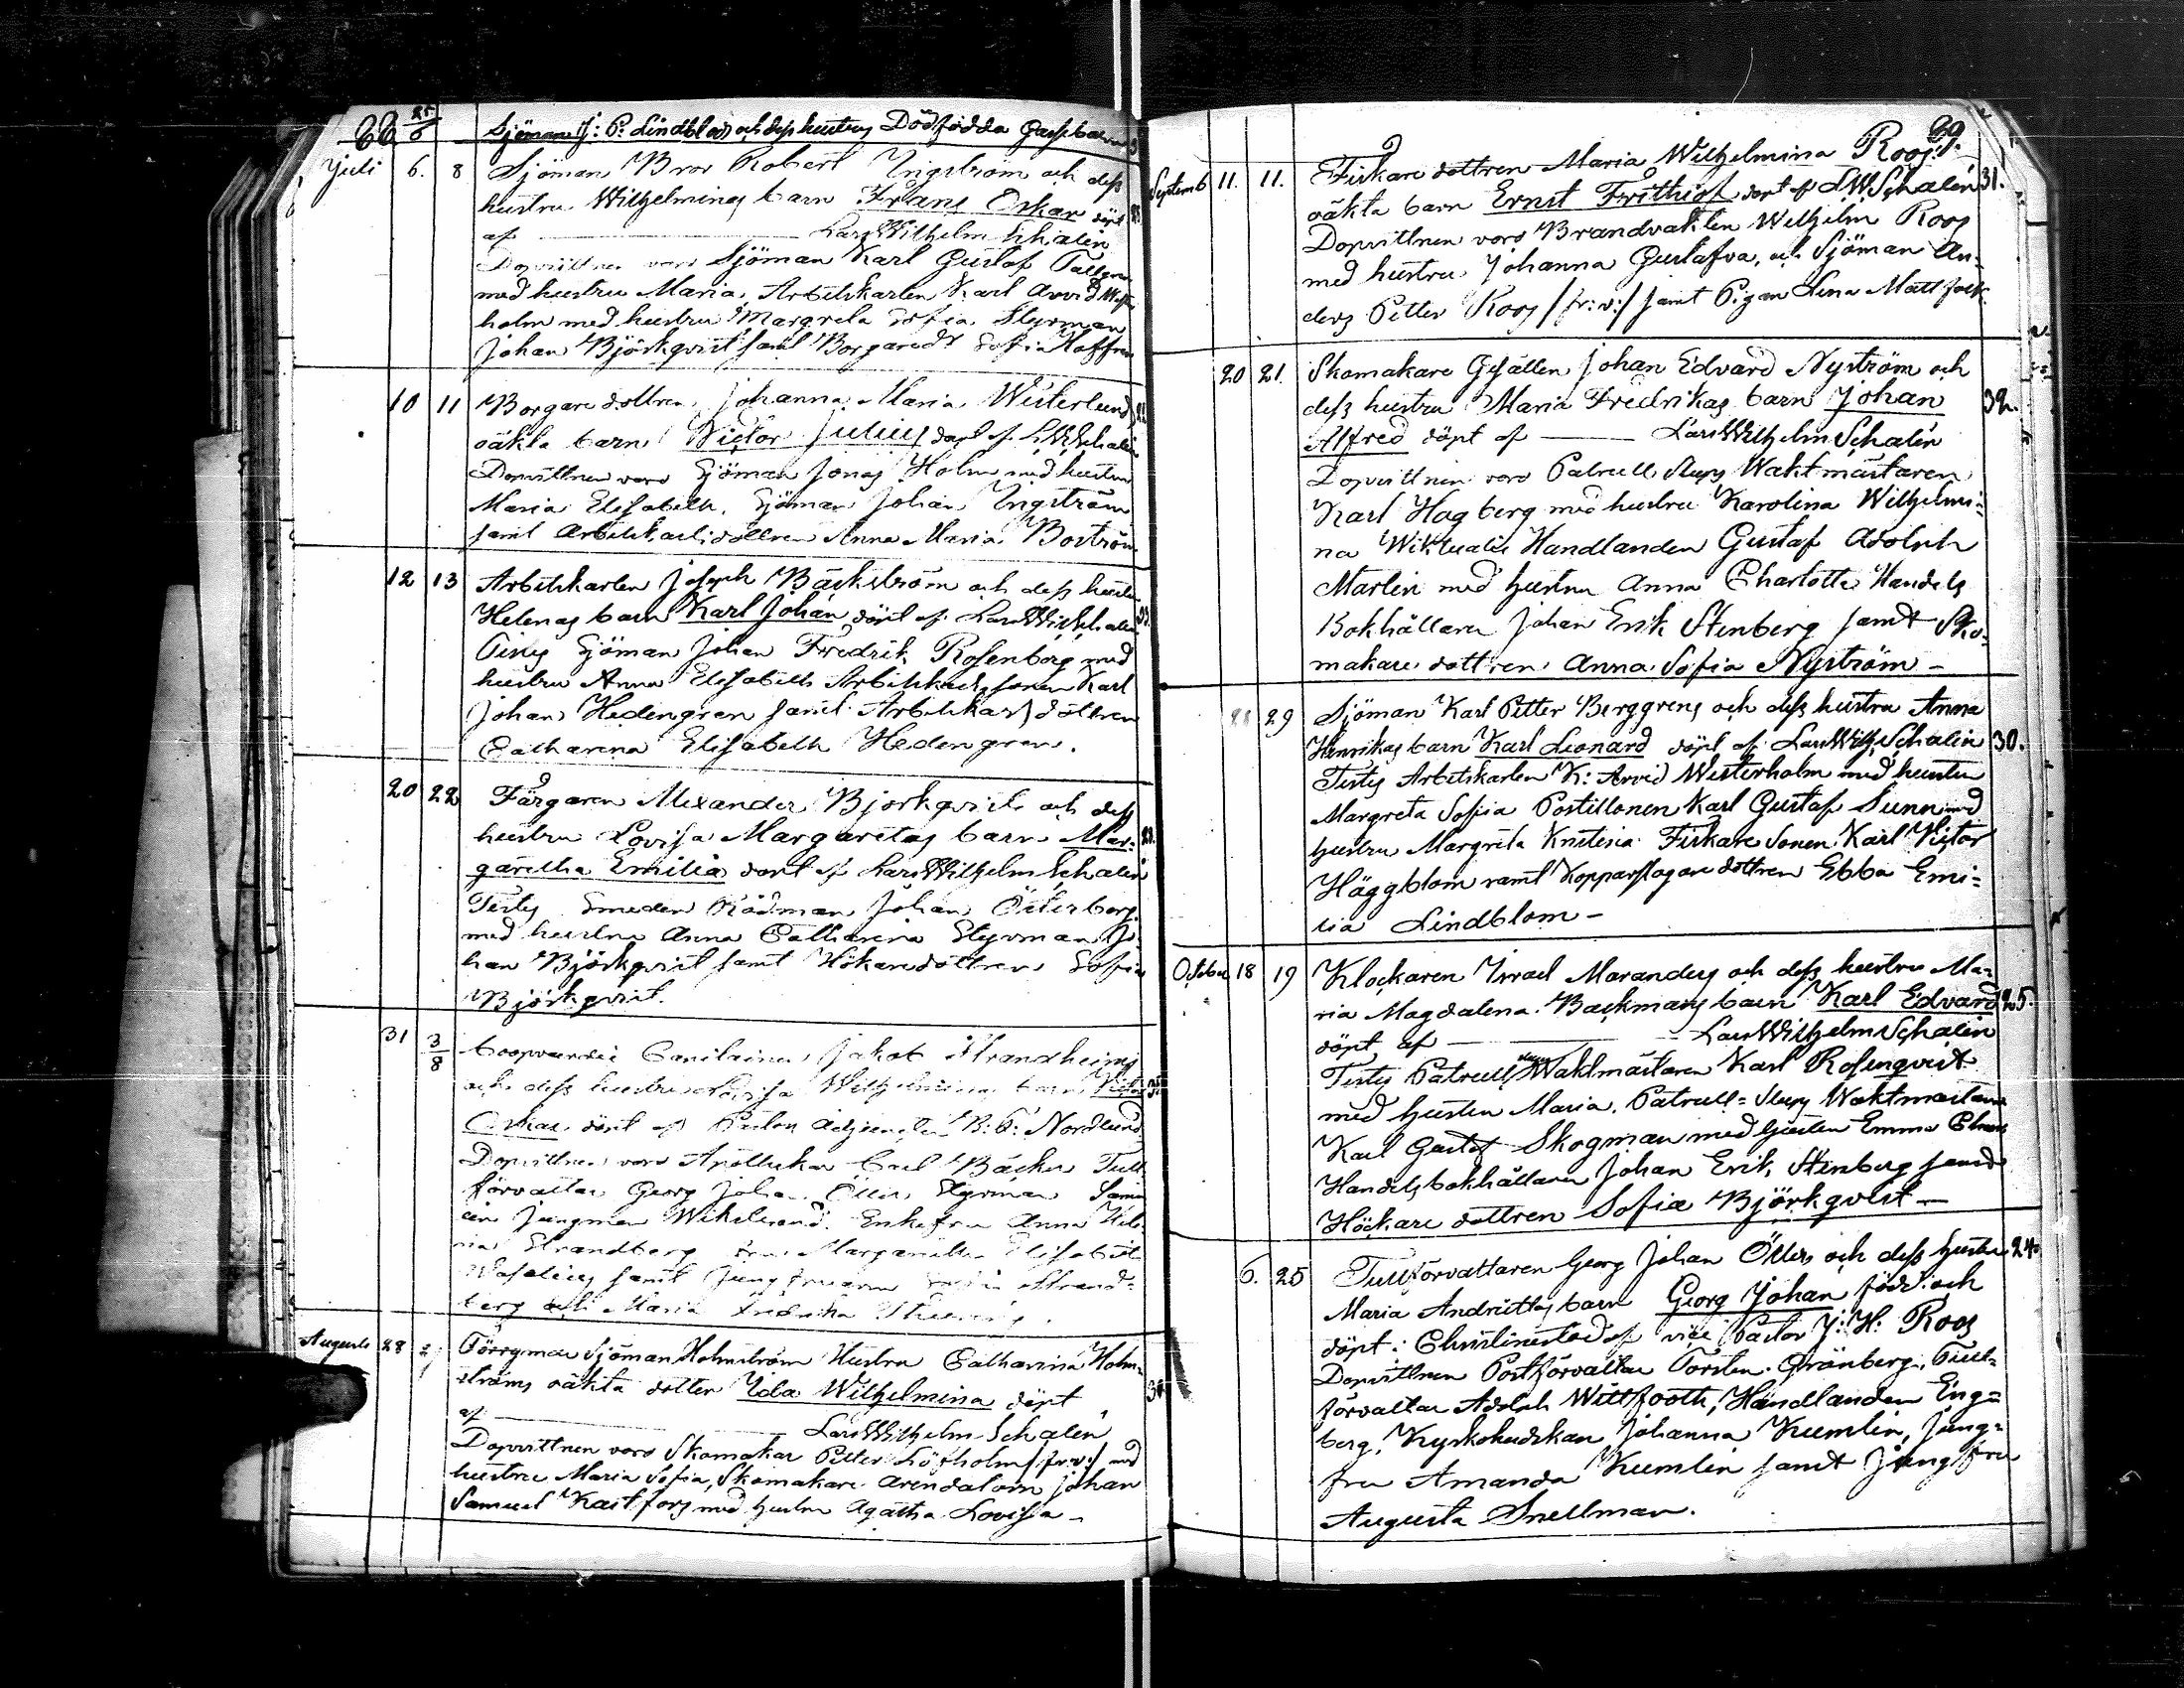 66 25/6 Sjöman J: P: Lindblads och dess hustrus Dödfödda Gossebarn
Juli 6. 8 Sjöman Bror Robert Ingström och dess
hustru Wilhelminas barn Frans Oskar döpt
af Lars Wilhelm Schalin
Dopvittnen voro Sjöman Karl Gustaf Tallgren
med hustru Maria, Arbetskarlen Karl Arvid Wester
holm med hustru Margreta Sofia Styrman
Johan Björkqvist samt Borgaredr Sofia Hoffren
10 11 Borgare dottren Johanna Maria Westerlunds
oäkta barn Victor Julius döpt af L W Schalin
Dopvittnen voro Sjöman Jonas Holm med hustru
Maria Elisabeth, Sjöman Johan Ingström
samt Arbetskarlsdottren Anna Maria Boström
12 13 Arbetskarlen Joseph Bäckström och dess hustru
Helenas barn Karl Johan döpt af Lars W Schalin
Sjöman Johan Fredrik Rosenborg med
hustru Anna Elisabeth Arbetskarls sonen Karl
Johan Hedengren samt Arbetskarls dottren
Catharina Elisabeth Hedengren.
20 22 Färgaren Alexander Björkqvist och dess
hustru Lovisa Margaretas barn Mar-
garetha Emilia döpt af Lars Wilhelm Schalin
Testes Smeden Rådman Johan Österberg
med hustru Anna Catharina Styrman Jo-
han Björkqvist samt Hökaredottren Sofia
Björkqvist.
31 3/8 Coopverdie Capitainen Jakob Strandheims
och dess hustru Lovisa Wilhelminas barn Victor
Oskar döpt af Pastors Adjuncten B: P: Nordlund
Dopvittnen voro Apothekar Carl Bäcker Tull
förvaltar Georg Johan Öller Styrman
Jungman Wiklund. Enkefru Anna
Strandberg Fru Margaretha Elisabet
Waselius samt Jungfruarna Strand-
berg och Maria Fredrika
Augusti 28 Förrymde Sjöman Holmström Hustru Catharina Holm-
ströms oäkta dotter Ida Wilhelmina döpt
af Lars Wilhelm Schalin
Dopvittnen voro Skomakar Petter Löfholm /fr:v:/ med
hustru Maria Sofia, Skomakare Arendatorn Johan
Samuel Kastfors med hustru Agatha Lovisa -
69
Septemb 11. 11. Fiskare dottren Maria Wilhelmina Roos's 31.
oäkta barn Ernst Frithiof döpt af L W Schalin
Dopvittnen voro Brandvakten Wilhelm Roos
med hustru Johanna Gustafva, och Sjöman An-
ders Petter Roos /fr:v:/ samt Pigan Lena Matt
20 21. Skomakare Gesällen Johan Edvard Nyström och
dess hustru Maria Fredrikas barn Johan 32.
Alfred döpt af Lars Wilhelm Schalin
Dopvittnen voro Patrull Slups Waktmästaren
Karl Hagberg med hustru Karolina Wilhelmi-
na Wiktualie Handlanden Gustaf Adolph
Martin med hustru Anna Charlotta Handels
Bokhållaren Johan Erik Stenberg samt Sko-
makare dottren Anna Sofia Nyström -
28 29 Sjöman Karl Petter Berggrens och dess hustru Anna
Henrikas barn Karl Leonard döpt af Lars Wilh. Schalin 30.
Testes Arbetskarlen K: Arvid Westerholm med hustru
Margreta Sofia Postillonen Karl Gustaf Sunn med
hustru Margreta Kristina Fiskare Sonen Karl Victor
Häggblom samt Kopparslagare dottren Ebba Emi-
lia Lindblom -
October 18 19 Klockaren Israel Maranders och dess hustru Ma-
ria Magdalena Backmans barn Karl Edvard 25.
döpt af Lars Wilhelm Schalin
Testes Patrull Slups Waktmästaren Karl Rosenqvist
med hustru Maria, Patrull-Slups Waktmästaren
Karl Gustaf Skogman med hustru Emma
Handels bokhållaren Johan Erik Stenberg samt
Höckare dottren Sofia Björkqvist -
6. 25 Tullförvaltaren Georg Johan Öllers och dess hustru 24.
Maria Andriettas barn Georg Johan född och
döpt i Christinestad af vice Pastor J: H: Roos
Dopvittnen Postförvaltar Torsten Grönberg, Tull-
förvaltar Adolph Wittfooth, Handlanden Eng-
berg, Kyrkoherdskan Johanna Kumlin, Jung-
fru Amanda Kumlin samt Jungfru
Augusta Snellman.